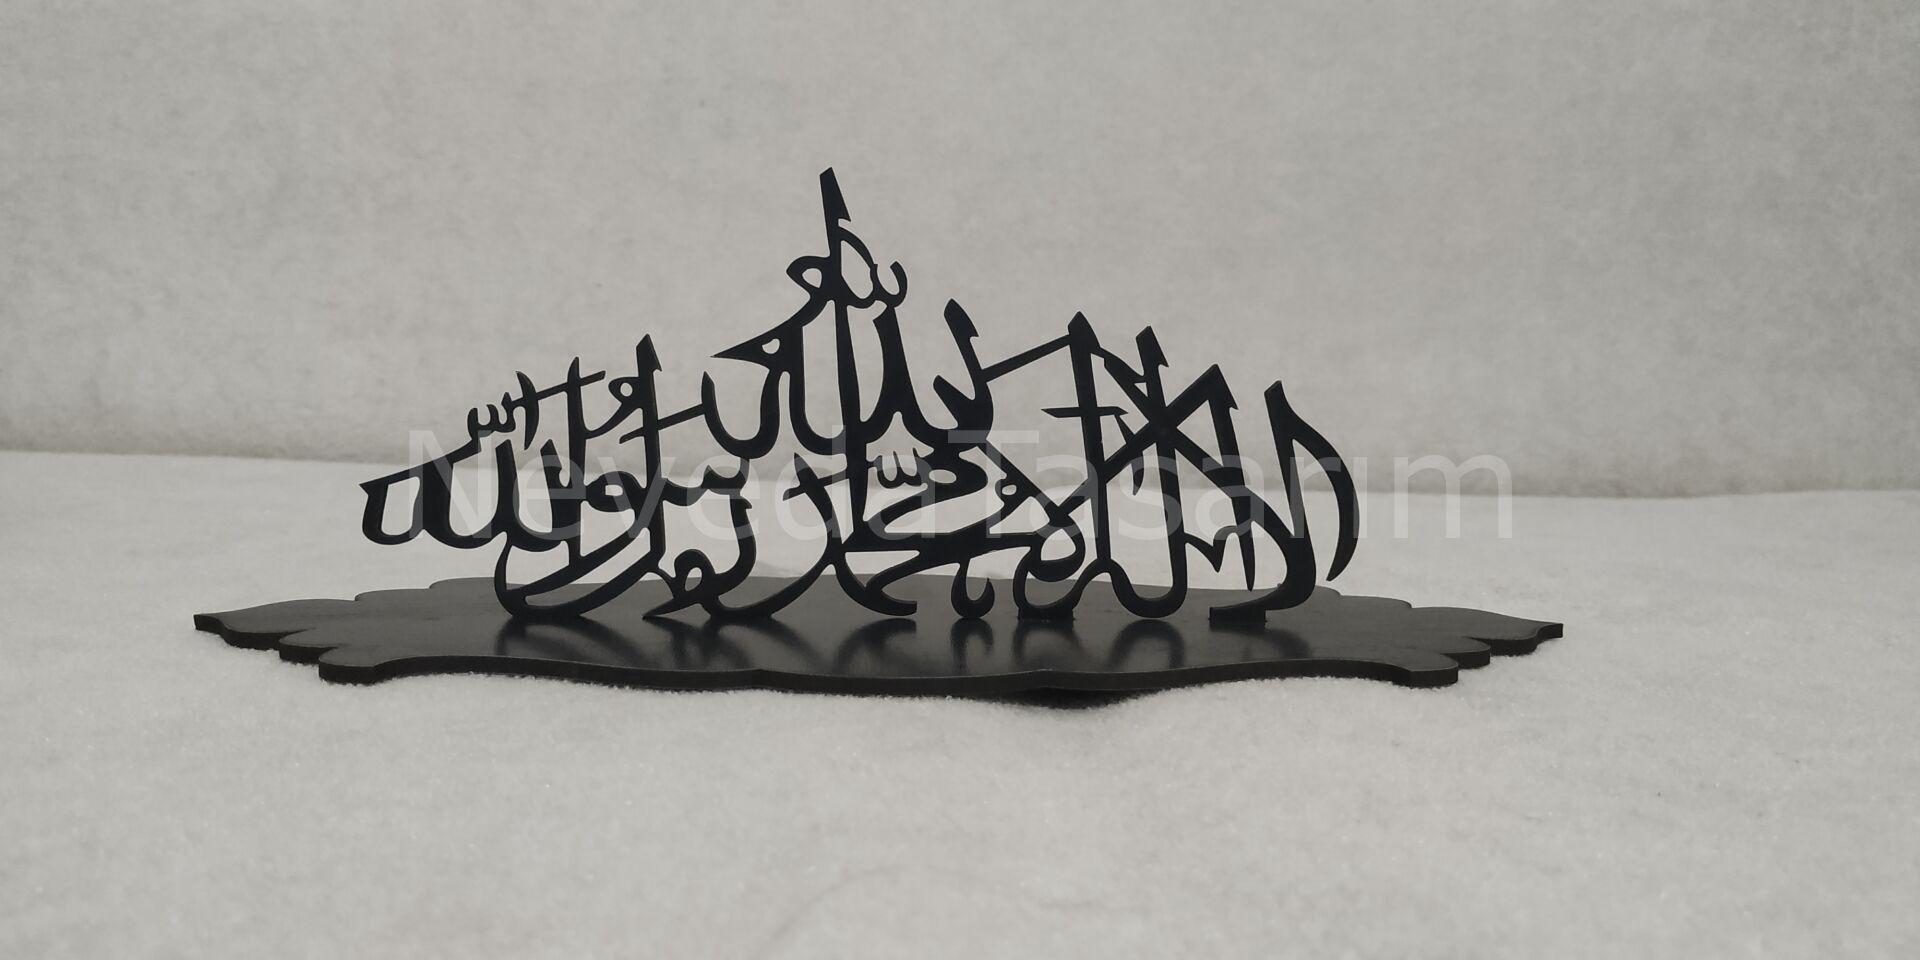 لا إله إلا الله محمد رسول الله
Neveda Tasarım